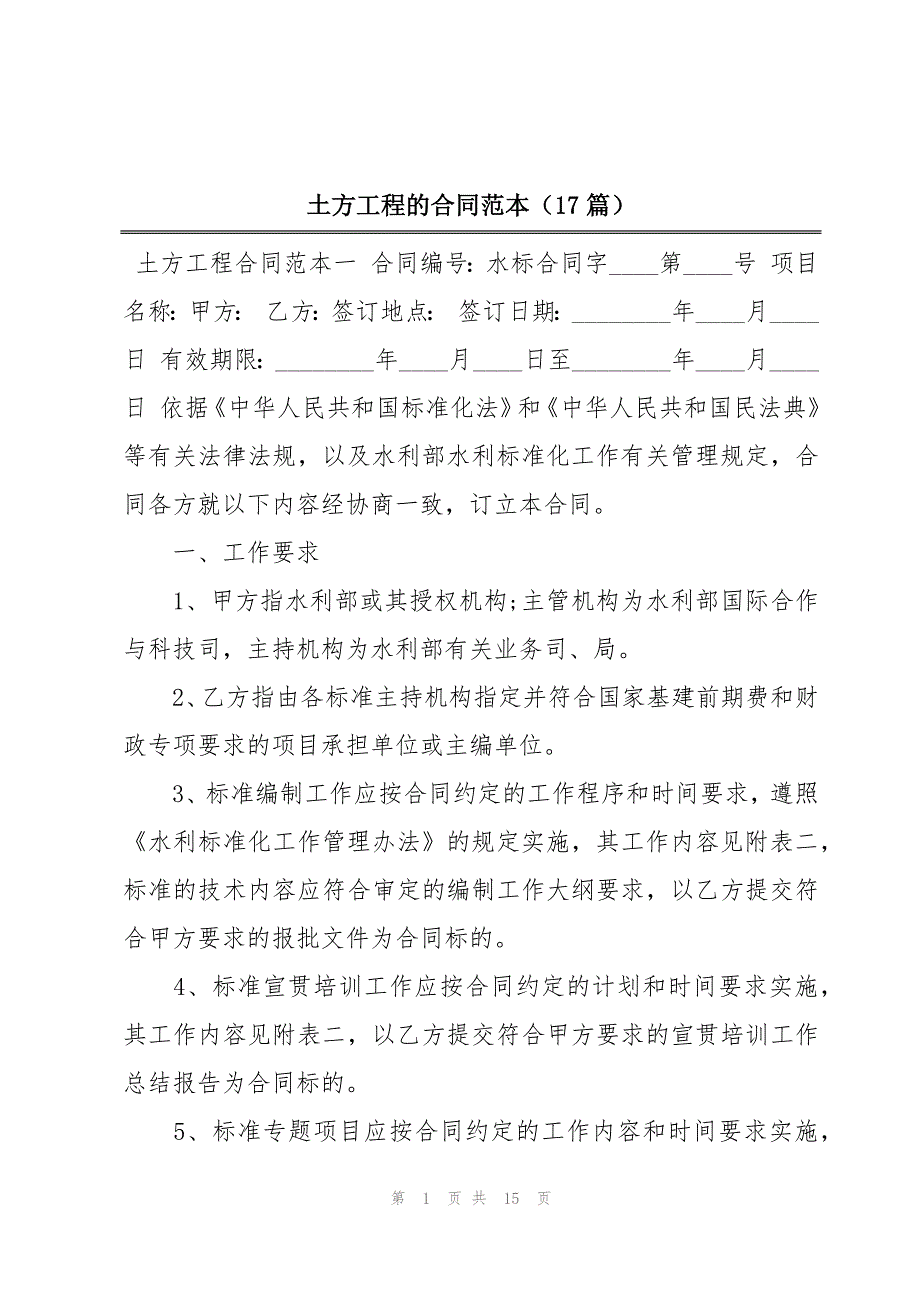 土方工程的合同范本（17 篇）
土方工程合同范本一 合同编号: 水标合同字____第____号 项目
名称: 甲方： 乙方: 签订地点： 签订日期: ________年____月____
日 有效期限: ________年____月____日至________年____月____
日 依据《中华人民共和国标准化法》和《中华人民共和国民法典》
等有关法律法规，以及水利部水利标准化工作有关管理规定，合
同各方就以下内容经协商一致，订立本合同。
一、工作要求
1、甲方指水利部或其授权机构;主管机构为水利部国际合作
与科技司，主持机构为水利部有关业务司、局。
2、乙方指由各标准主持机构指定并符合国家基建前期费和财
政专项要求的项目承担单位或主编单位。
3、标准编制工作应按合同约定的工作程序和时间要求，遵照
《水利标准化工作管理办法》的规定实施，其工作内容见附表二，
标准的技术内容应符合审定的编制工作大纲要求，以乙方提交符
合甲方要求的报批文件为合同标的。
4、标准宣贯培训工作应按合同约定的计划和时间要求实施，
其工作内容见附表二，以乙方提交符合甲方要求的宣贯培训工作
总结报告为合同标的。
5、标准专题项目应按合同约定的工作内容和时间要求实施，
第 1 页 共 15 页